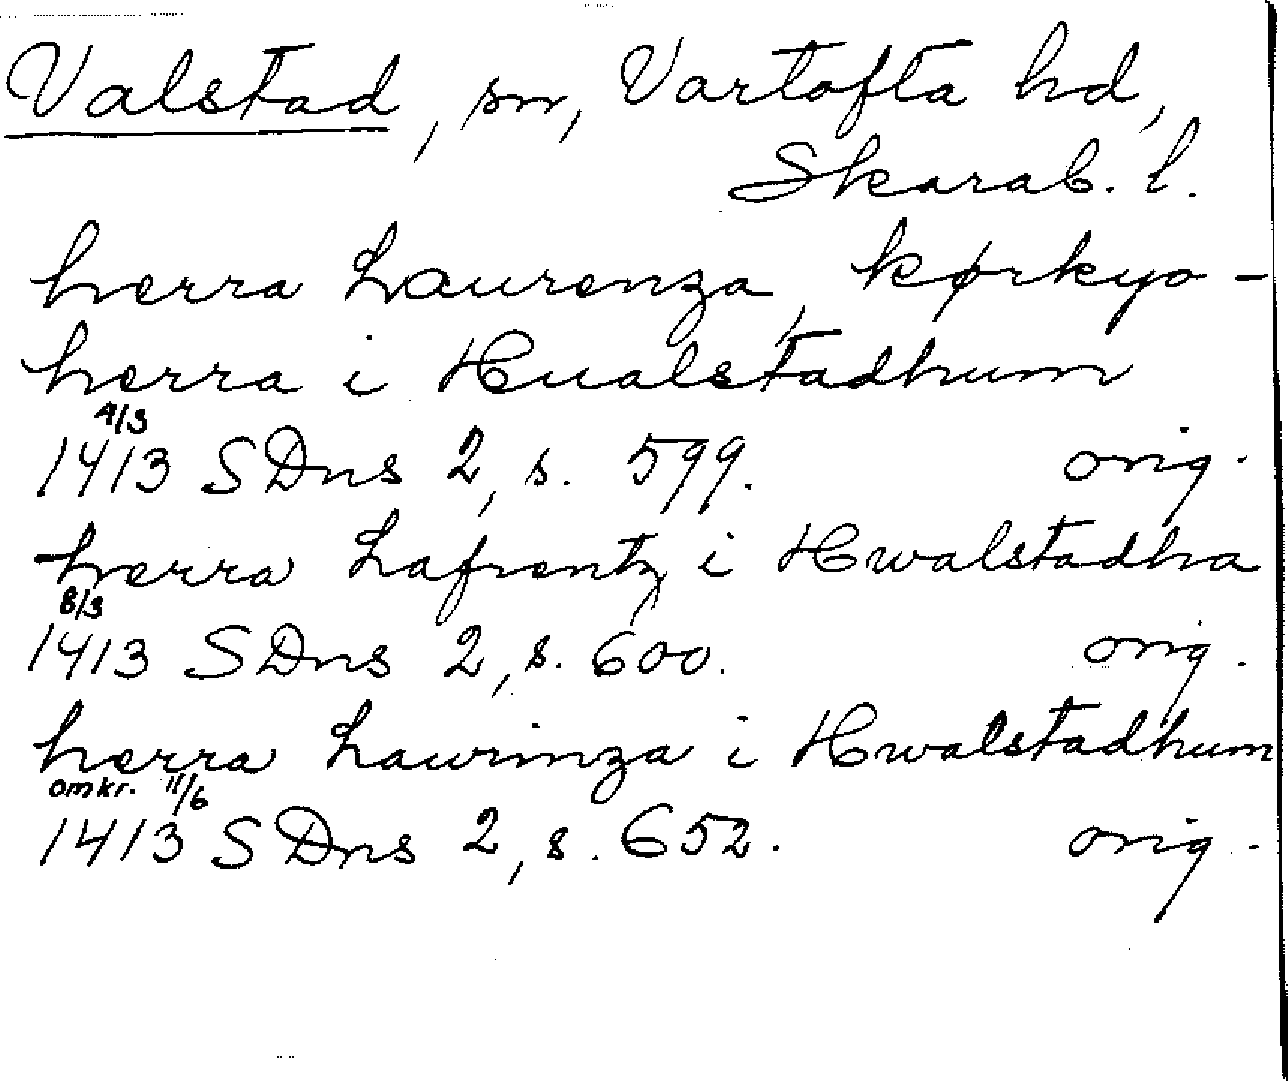 Valstad, sn, Vartofta hd,
Skarab. l.
herra Laurenza, kørkyo-
herra i Hualstadhum
4/3
1413 SDns 2, s. 599. orig.
herra Lafrentz i Hwalstadha
8/3
1413 SDns 2, s. 600. orig.
herra Laurinza i Hwalstadhum
omkr. 11/6
1413 SDns 2, s. 652. orig.